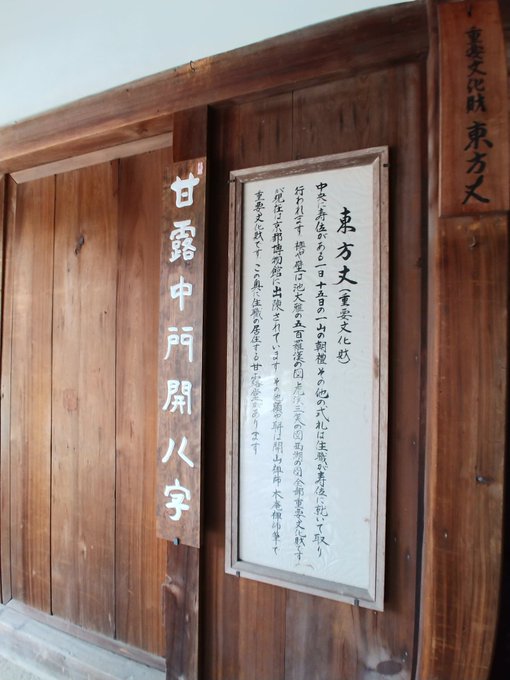 重要文化財 東方丈
東方丈(重要文化財)
中央に寿位がある一日十五日の一山の朝禮その他の式礼は住職が寿位に就いて取り
行われます 襖や壁は池大雅の五百羅漢の図 虎渓三笑の図 西湖の図全部重要文化財です
が現在は京都博物館に出陳されています その他額や聯は開山禅師 木庵禅師筆で
重要文化財です この奥に住職の居住する甘露堂があります
甘露中門開八字